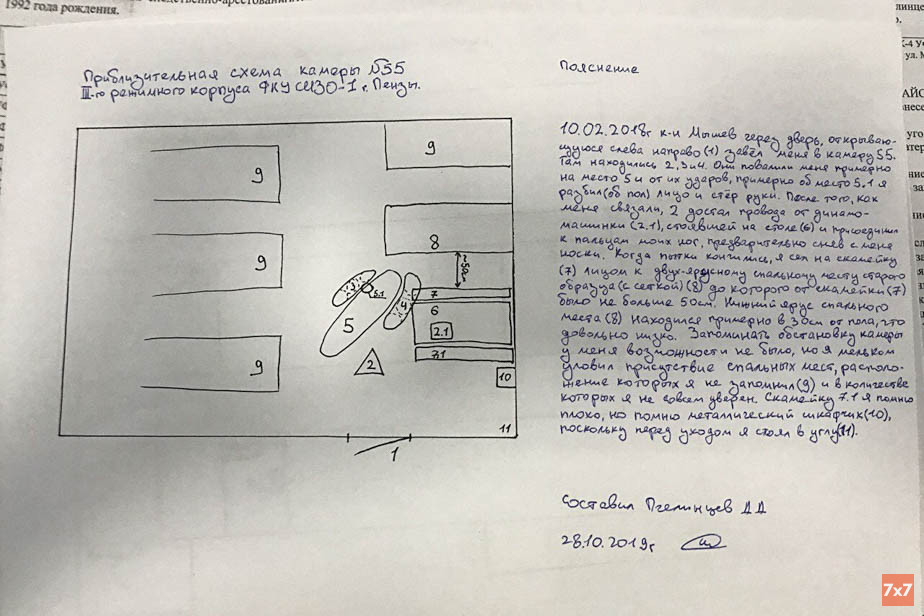 1992 года рождения.
Приблизительная схема камеры №55
III-го режимного корпуса ФКУ СИЗО-1 г. Пензы.
9
9
9
9
8
≈50см
7
6
2.1
7.1
10
3
5.1
4
5
2
11
1
Пояснение
10.02.2018г к-н Мышев через дверь, открываю-
щуюся слева направо (1) завёл меня в камеру 55.
Там находились 2, 3 и 4. Они повалили меня примерно
на место 5 и от их ударов, примерно об место 5.1 я
разбил (об пол) лицо и стёр руки. После того, как
меня связали, 2 достал провода от динамо-
машинки (2.1), стоявшей на столе (6) и присоединил
к пальцам моих ног, предварительно сняв с меня
носки. Когда пытки кончились, я сел на скамейку
(7) лицом к двух-ярусному спальному месту старого
образца (с сеткой) (8) до которого от скамейки (7)
было не больше 50см. Нижний ярус спального
места (8) находился примерно в 30см от пола, что
довольно низко. Запоминать обстановку камеры
у меня возможности не было, но я мельком
уловил присутствие спальных мест, располо-
жение которых я не запомнил (9) и в количестве
которых я не совсем уверен. Скамейку 7.1 я помню
плохо, но помню металлический шкафчик (10),
поскольку перед уходом я стоял в углу (11).
Составил Пчелинцев Д Д
28.10.2019г
7x7